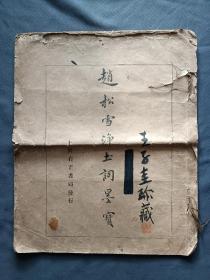 王子圭珍藏
趙松雪淨土詞墨寶
上海有正書局發行